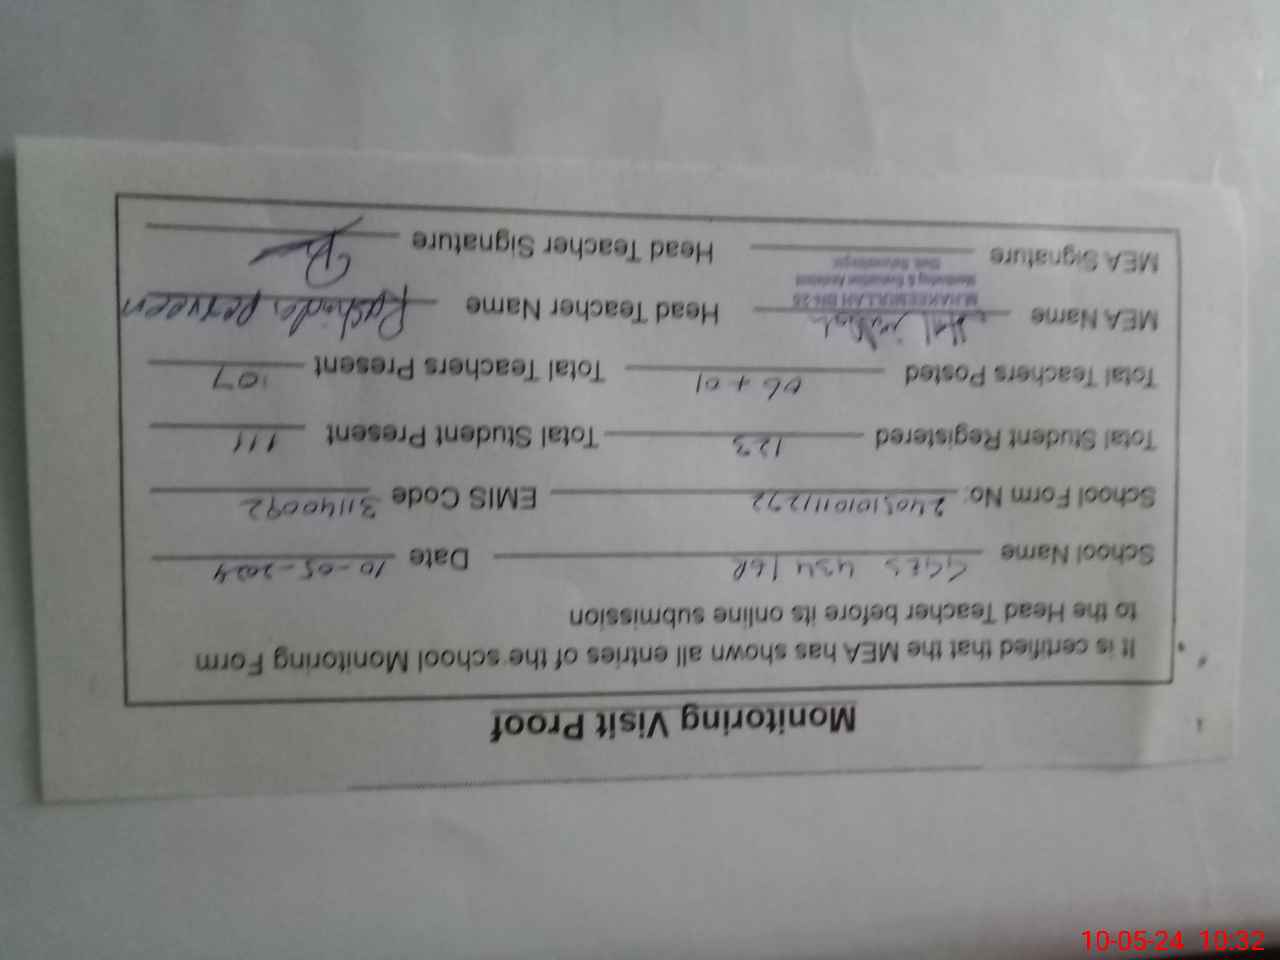 Monitoring Visit Proof
It is certified that the MEA has shown all entries of the school Monitoring Form
to the Head Teacher before its online submission
School Name GGES 434/6R Date 10-05-2024
School Form No: EMIS Code 31140092
Total Student Registered 123 Total Student Present 111
Total Teachers Posted 06+01 Total Teachers Present 07
MEA Name Head Teacher Name Rashida perveen
M.HAKEEMULLAH
Monitoring & Evaluation Assistant
MEA Signature Head Teacher Signature
10-05-24 10:32